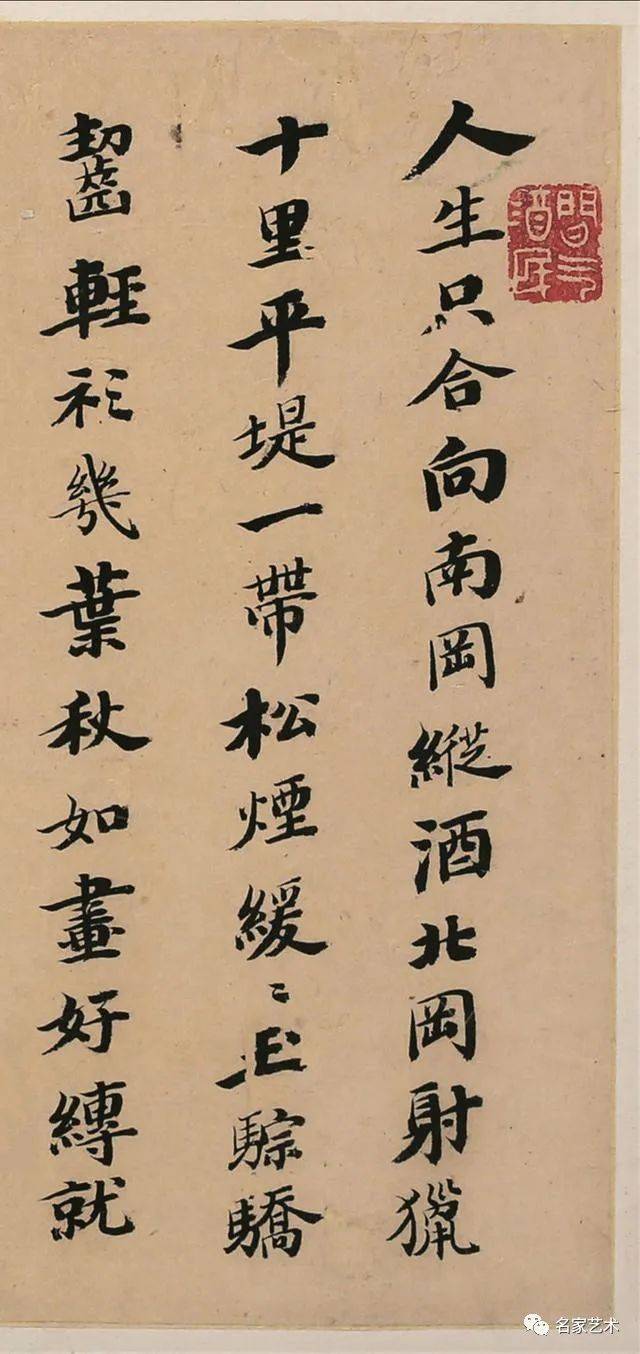 人生只合向南岡縱酒北岡射獵
十里平堤一帶松煙緩〻玉騌驕
齧輕衫幾葉秋如畫好縛就
名家艺术